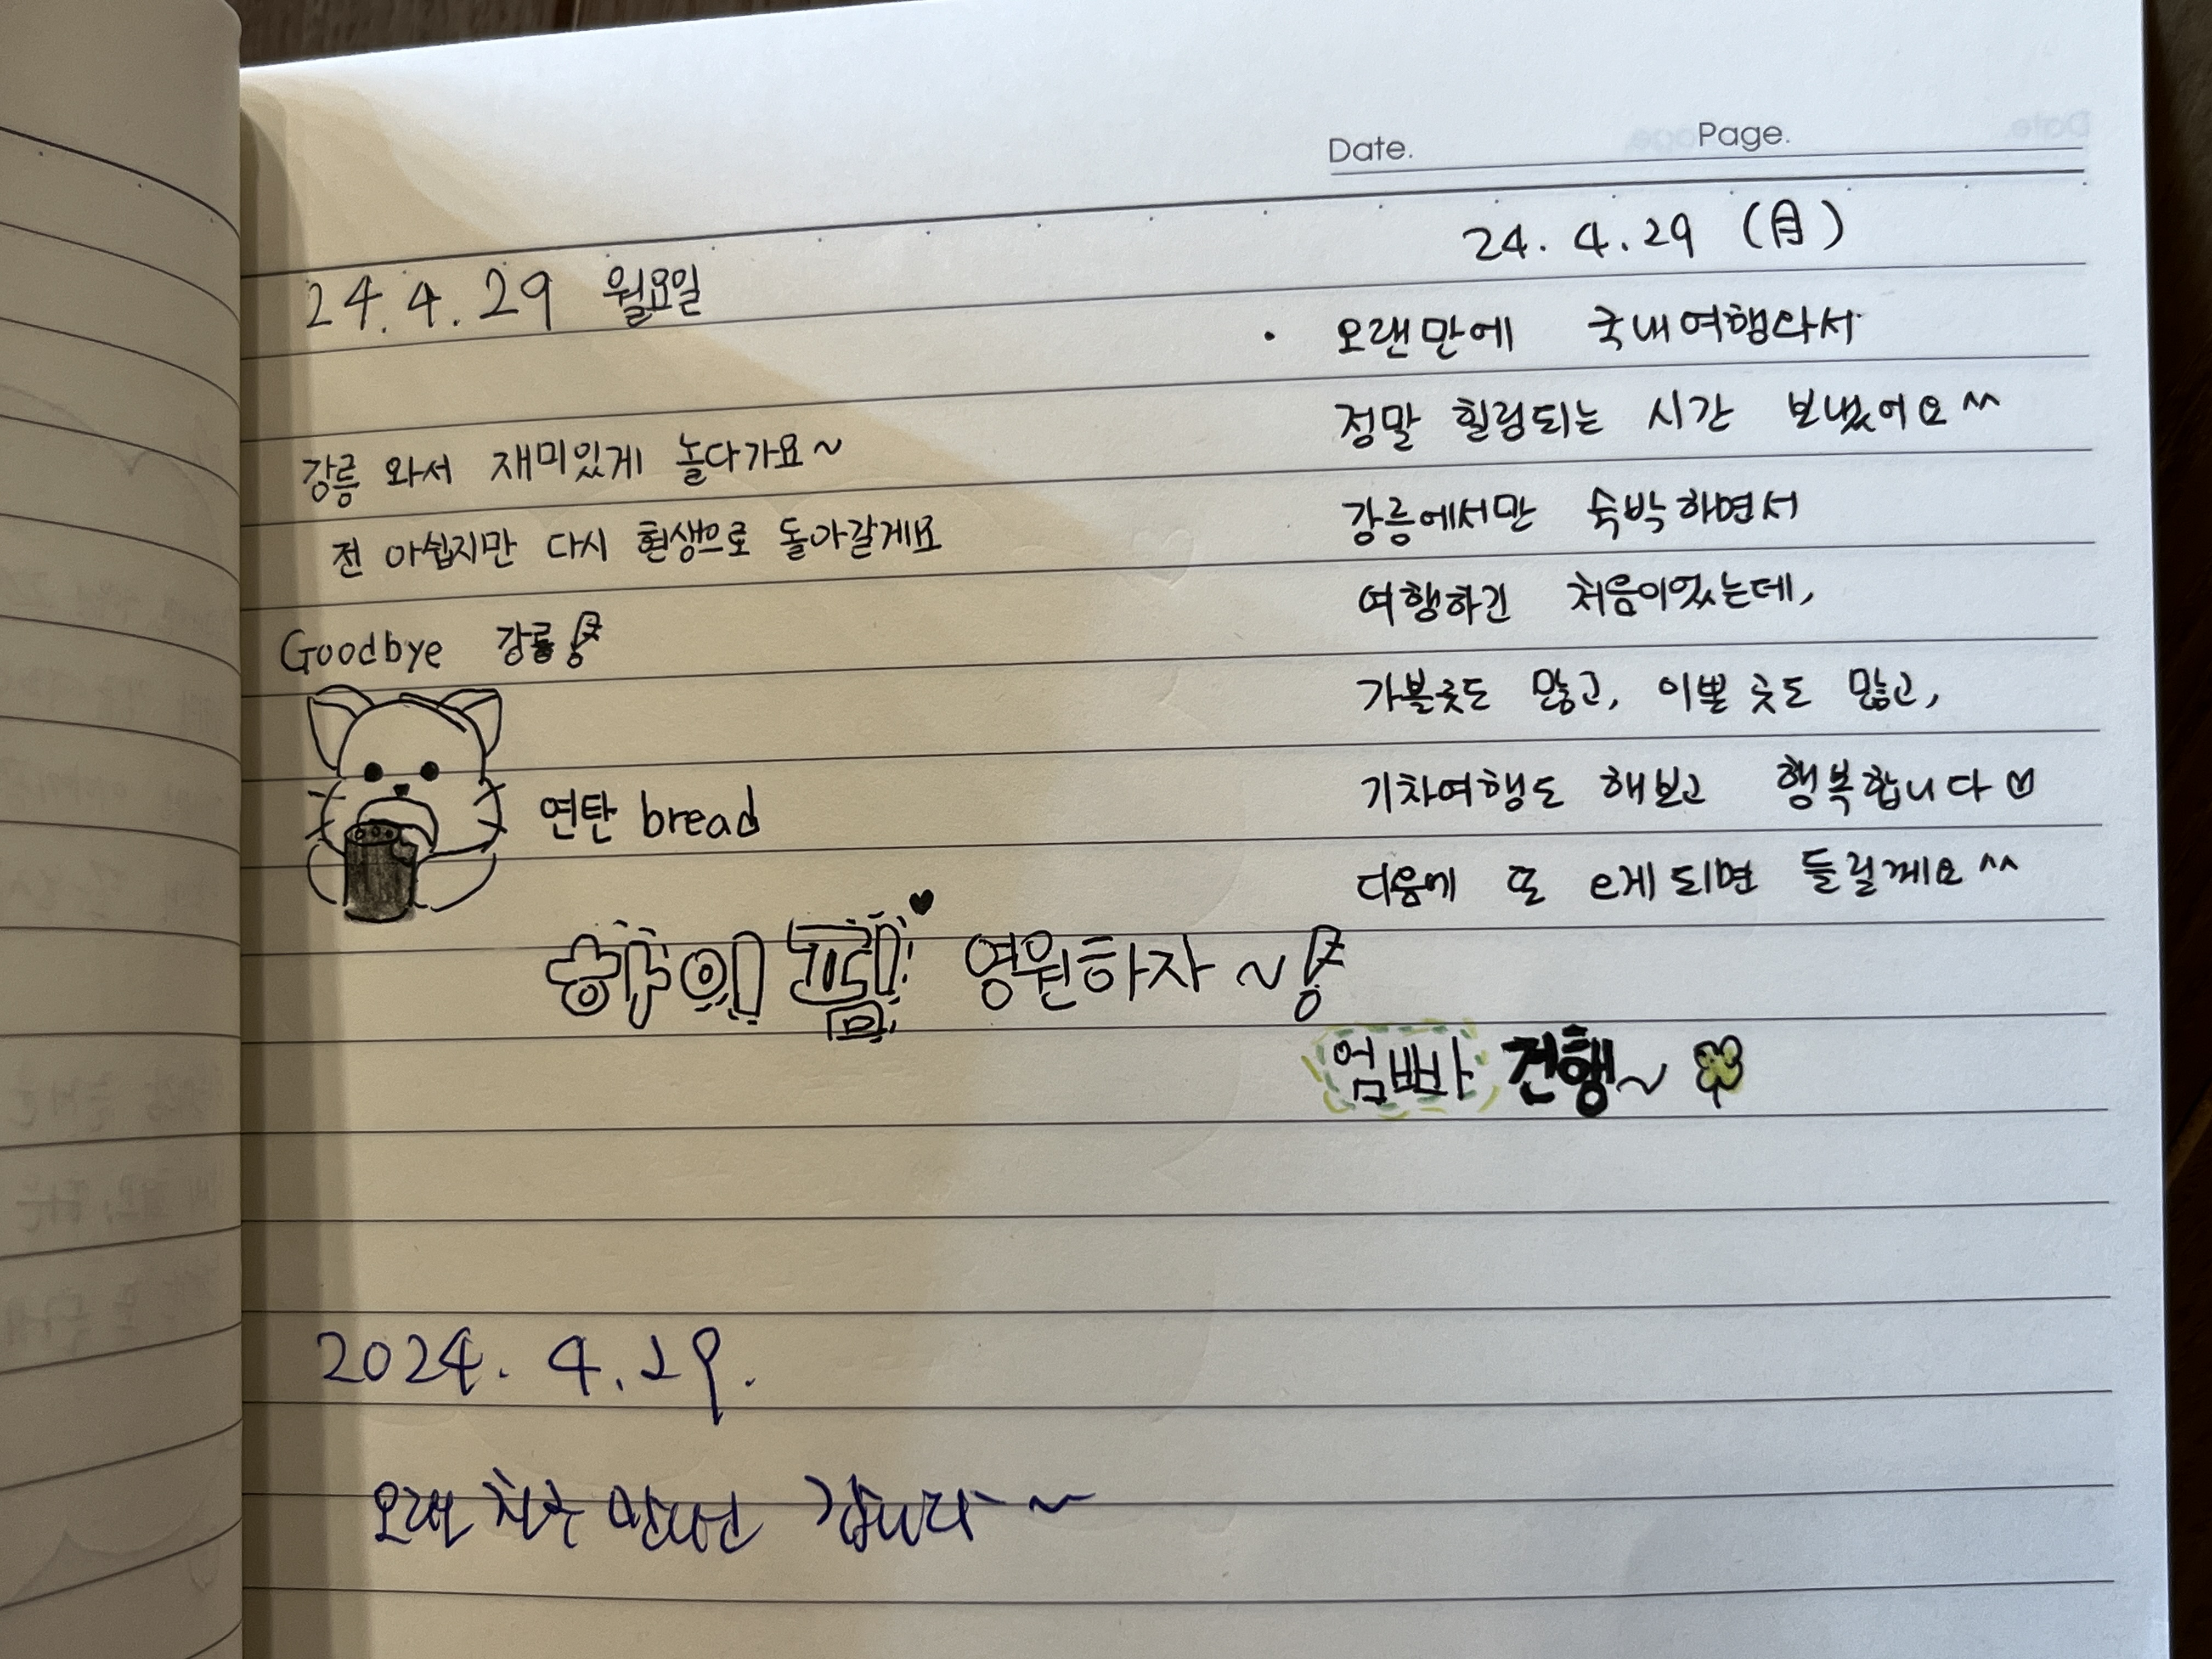 Date. Page.
24.4.29 월요일
강릉 와서 재미있게 놀다가요~
전 아쉽지만 다시 현생으로 돌아갈게요
Goodbye 강릉
연탄 bread
하이펨♥ 영원하자~
24. 4. 29 (月)
오랜만에 국내여행와서
정말 힐링되는 시간 보냈어요^^
강릉에서만 숙박하면서
여행하긴 처음이었는데,
가볼곳도 많고, 이쁜 곳도 많고,
기차여행도 해보고 행복합니다♡
다음에 또 오게되면 들릴께요^^
엄빠 건행~
2024. 4. 29.
오랜 친구 만나러 갑니다~